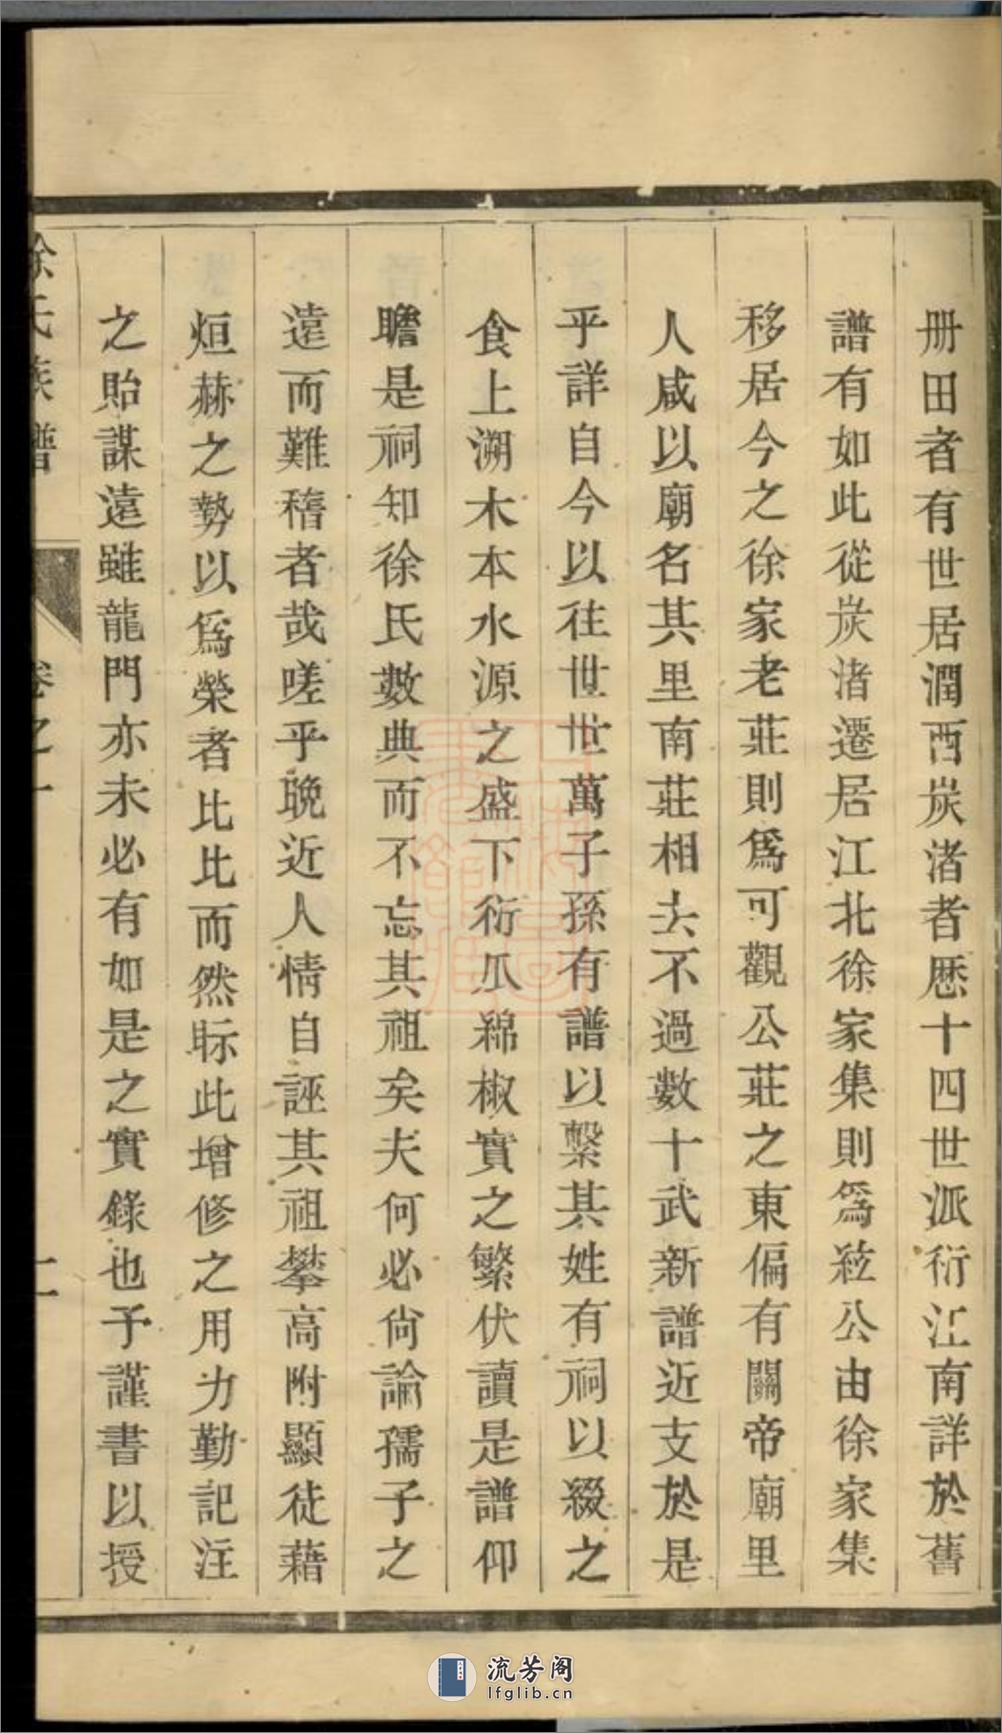 册田者有世居潤西炭渚者歷十四世派衍江南詳於舊
譜有如此從炭渚遷居江北徐家集則爲㳬公由徐家集
移居今之徐家老莊則爲可觀公莊之東偏有關帝廟里
人咸以廟名其里南莊相去不過數十武新譜近支於是
乎詳自今以往世世萬子孫有譜以繫其姓有祠以綴之
食上溯木本水源之盛下衍瓜綿椒實之繁伏讀是譜仰
瞻是祠知徐氏數典而不忘其祖矣夫何必尙論孺子之
遠而難稽者哉嗟乎晚近人情自誣其祖攀高附顯徒藉
烜赫之勢以爲榮者比比而然眎此增修之用力勤記注
之貽謀遠雖龍門亦未必有如是之實錄也予謹書以授
徐氏族譜 卷之一 二
流芳阁
lfglib.cn